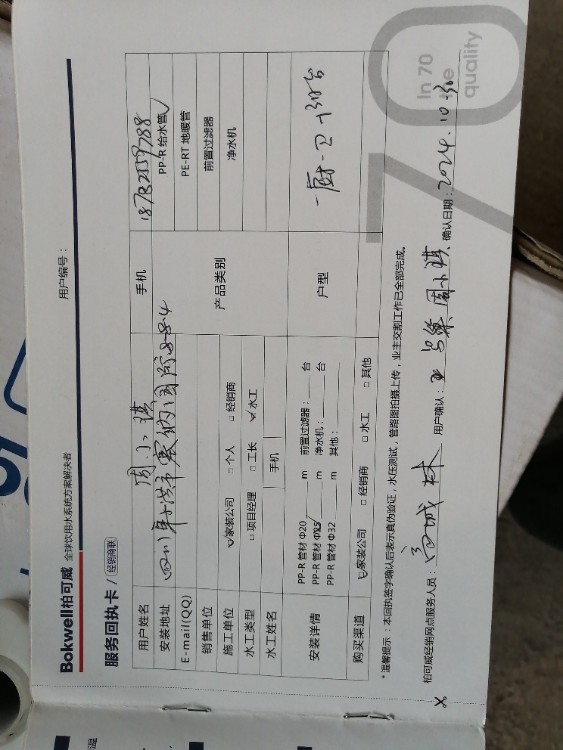 Bokwell柏可威 全球饮用水系统方案解决者
用户编号：
服务回执卡 / 经销商联
用户姓名 周小琪 手机 18782159788
安装地址
E-mail(QQ) 产品类别 PP-R 给水管 ✓
PE-RT 地暖管
前置过滤器
净水机
销售单位 ☑ 家装公司 □ 个人 □ 经销商
施工单位 □ 项目经理 □ 工长 ☑ 水工
水工类型
水工姓名 手机
安装详情 PP-R 管材 Φ20 m 前置过滤器： 台
PP-R 管材 Φ25 m 净水机： 台
PP-R 管材 Φ32 m 其他：
户型 一厨一卫
购买渠道 ☑ 家装公司 □ 经销商 □ 水工 □ 其他
* 温馨提示：本回执签字确认后表示真伪验证，水压测试，管路图拍摄上传，业主交割工作已全部完成。
柏可威经销网点服务人员： 用户确认： 周小琪 确认日期：2024.10.30
70
In 70
the
quality